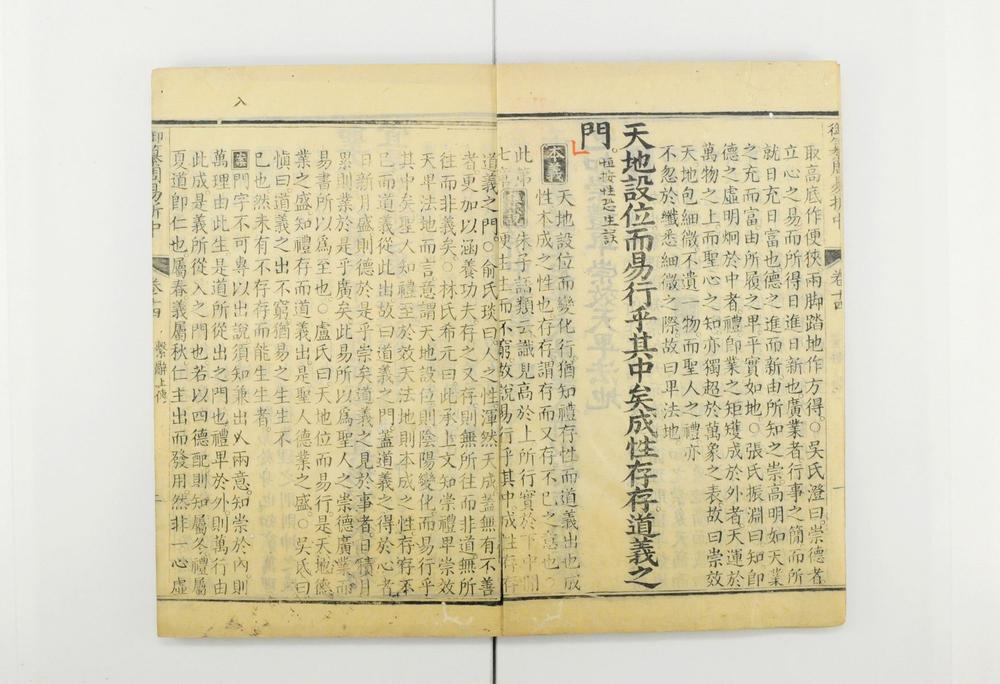 御纂周易折中 卷十四
取高底作便狹兩脚踏地作方得○吳氏澄曰崇德者
立心之易而所得日進日新也廣業者行事之簡而所
就日充日富也德之進而新由所知之崇高明如天業
之充而富由所履之卑平實如地○張氏振淵曰知即
德之虛明炯於中者禮即業之矩矱成於外者天運於
萬物之上而聖心之知亦獨超於萬象之表故曰崇效
天地包細微不遺一物而聖人之禮亦
不忽於纖悉細微之際故曰卑法地
天地設位而易行乎其中矣成性存存道義之
門
本義
天地設位而變化行猶知禮存性而道義出也成
性本成之性也存存謂存而又存不已之意也○
此第
七
朱子語類云識見高於上所行實於下中間
便生生而不窮故說易行乎其中成性存存
道義之門○俞氏琰曰人之性渾然天成蓋無有不善
者更加以涵養功夫存之又存則無所往而非道無所
往而非義矣○林氏希元曰此承上文知崇禮卑崇效
天卑法地而言意謂天地設位則陰陽變化而易行乎
其中矣聖人知禮至於效天法地則本成之性存存不
已而道義從此出故曰道義之門蓋道義之得於心者
日新月盛則德於是乎崇矣道義之見於事者日積月
累則業於是乎廣矣此易所以為聖人之崇德廣業而
易書所以為至也○盧氏曰天地位而易行是天地德
業之盛知禮存而道義出是聖人德業之盛○吳氏曰
愼曰道義之出不窮猶易之生生不
已也然未有不存存而能生生者
案
門字不可專以出說須知兼出入兩意知崇於內則
萬理由此生是道所從出之門也禮卑於外則萬行由
此成是義所從入之門也若以四德配則知屬冬禮屬
夏道即仁也屬春義屬秋仁主出而發用然非一心虛
御纂周易折中 卷十四 繫辭上傳
入